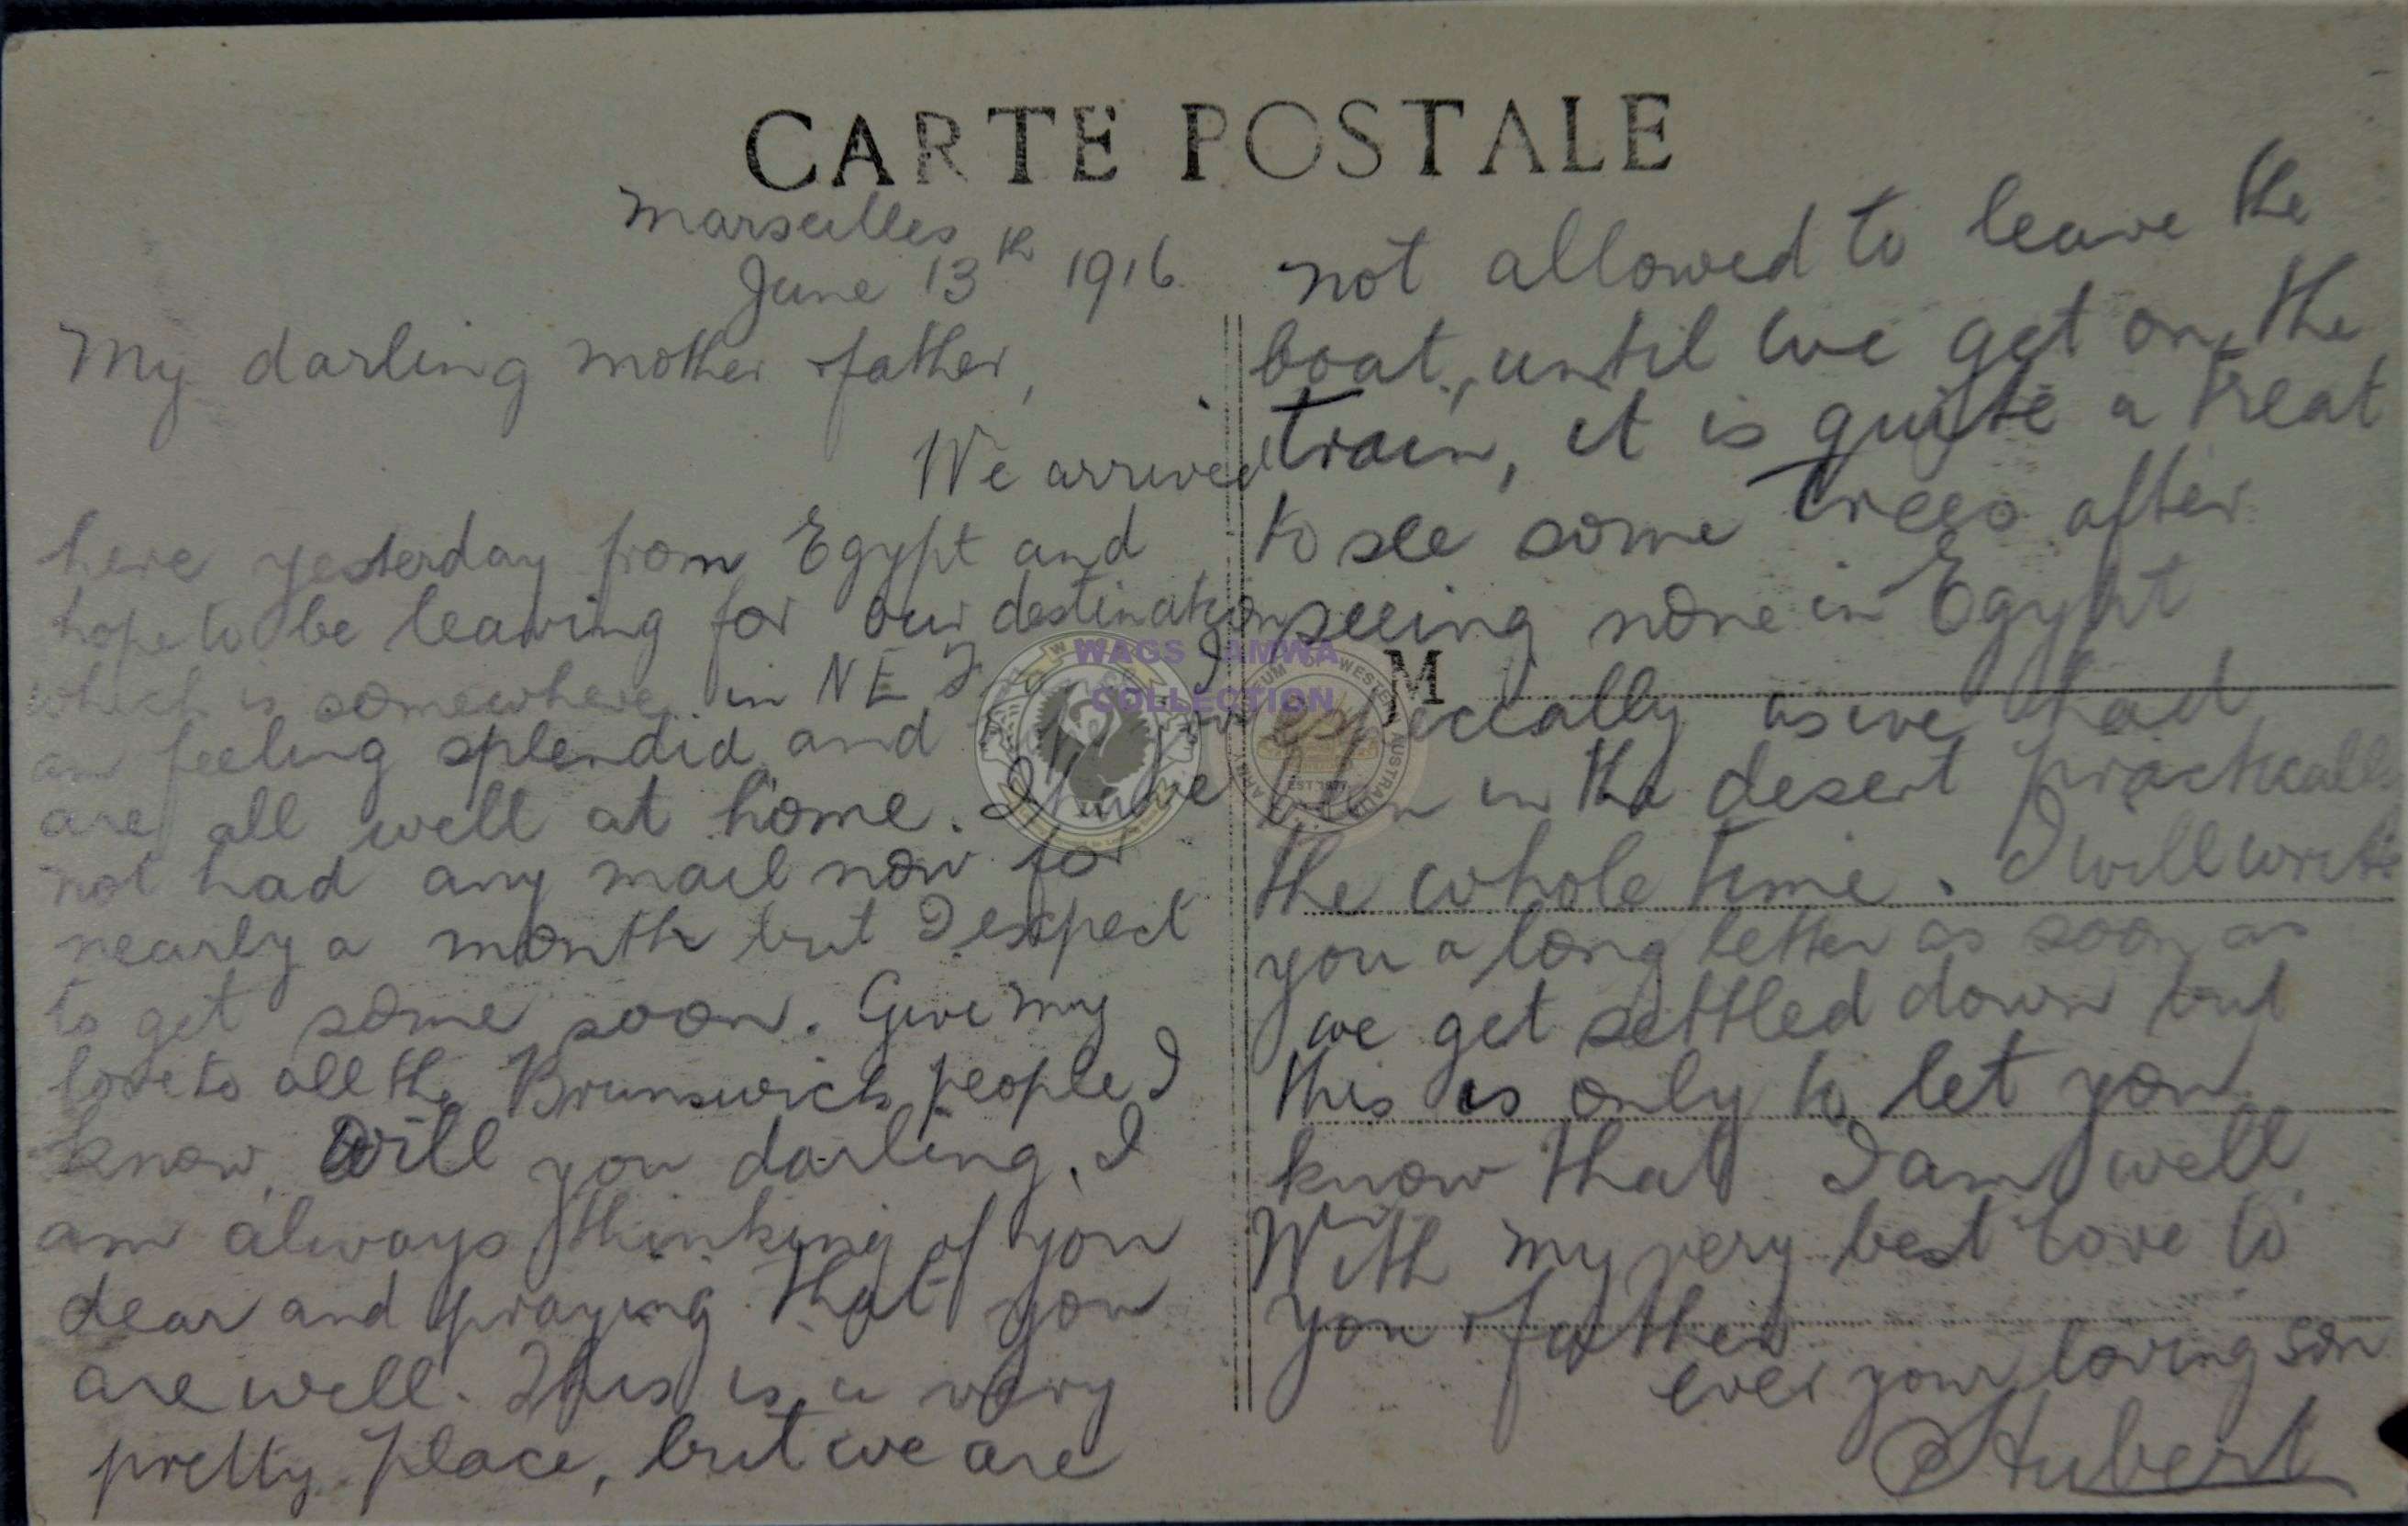 CARTE POSTALE
Marseilles
June 13th 1916
My darling mother & father,
We arrived
here yesterday from Egypt and
hope to be leaving for our destination
which is somewhere in N E F. I
am feeling splendid and
are all well at home. I have
not had any mail now for
nearly a month but I expect
to get some soon. Give my
love to all the Brunswick people I
know, will you darling, I
am always thinking of you
dear and praying that you
are well. This is a very
pretty place, but we are
not allowed to leave the
boat, until we get on the
train, it is quite a treat
to see some trees after
seeing none in Egypt
M
especially as we had
been in the desert practically
the whole time. I will write
you a long letter as soon as
we get settled down but
this is only to let you
know that I am well
With my very best love to
you & father
ever your loving son
Hubert
WAGS AMWA
COLLECTION